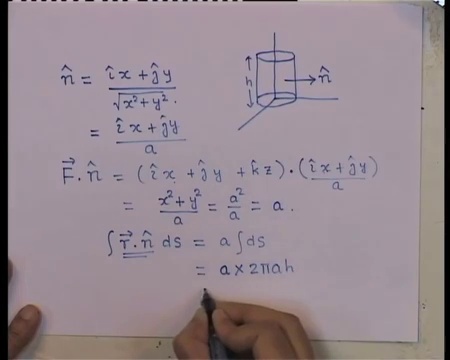 n̂ = (î x + ĵ y) / √(x² + y²) .
= (î x + ĵ y) / a
h
n̂
F⃗ . n̂ = (î x + ĵ y + k̂ z) . (î x + ĵ y) / a
= (x² + y²) / a = a² / a = a .
∫ r⃗ . n̂ ds = a ∫ ds
= a × 2πah